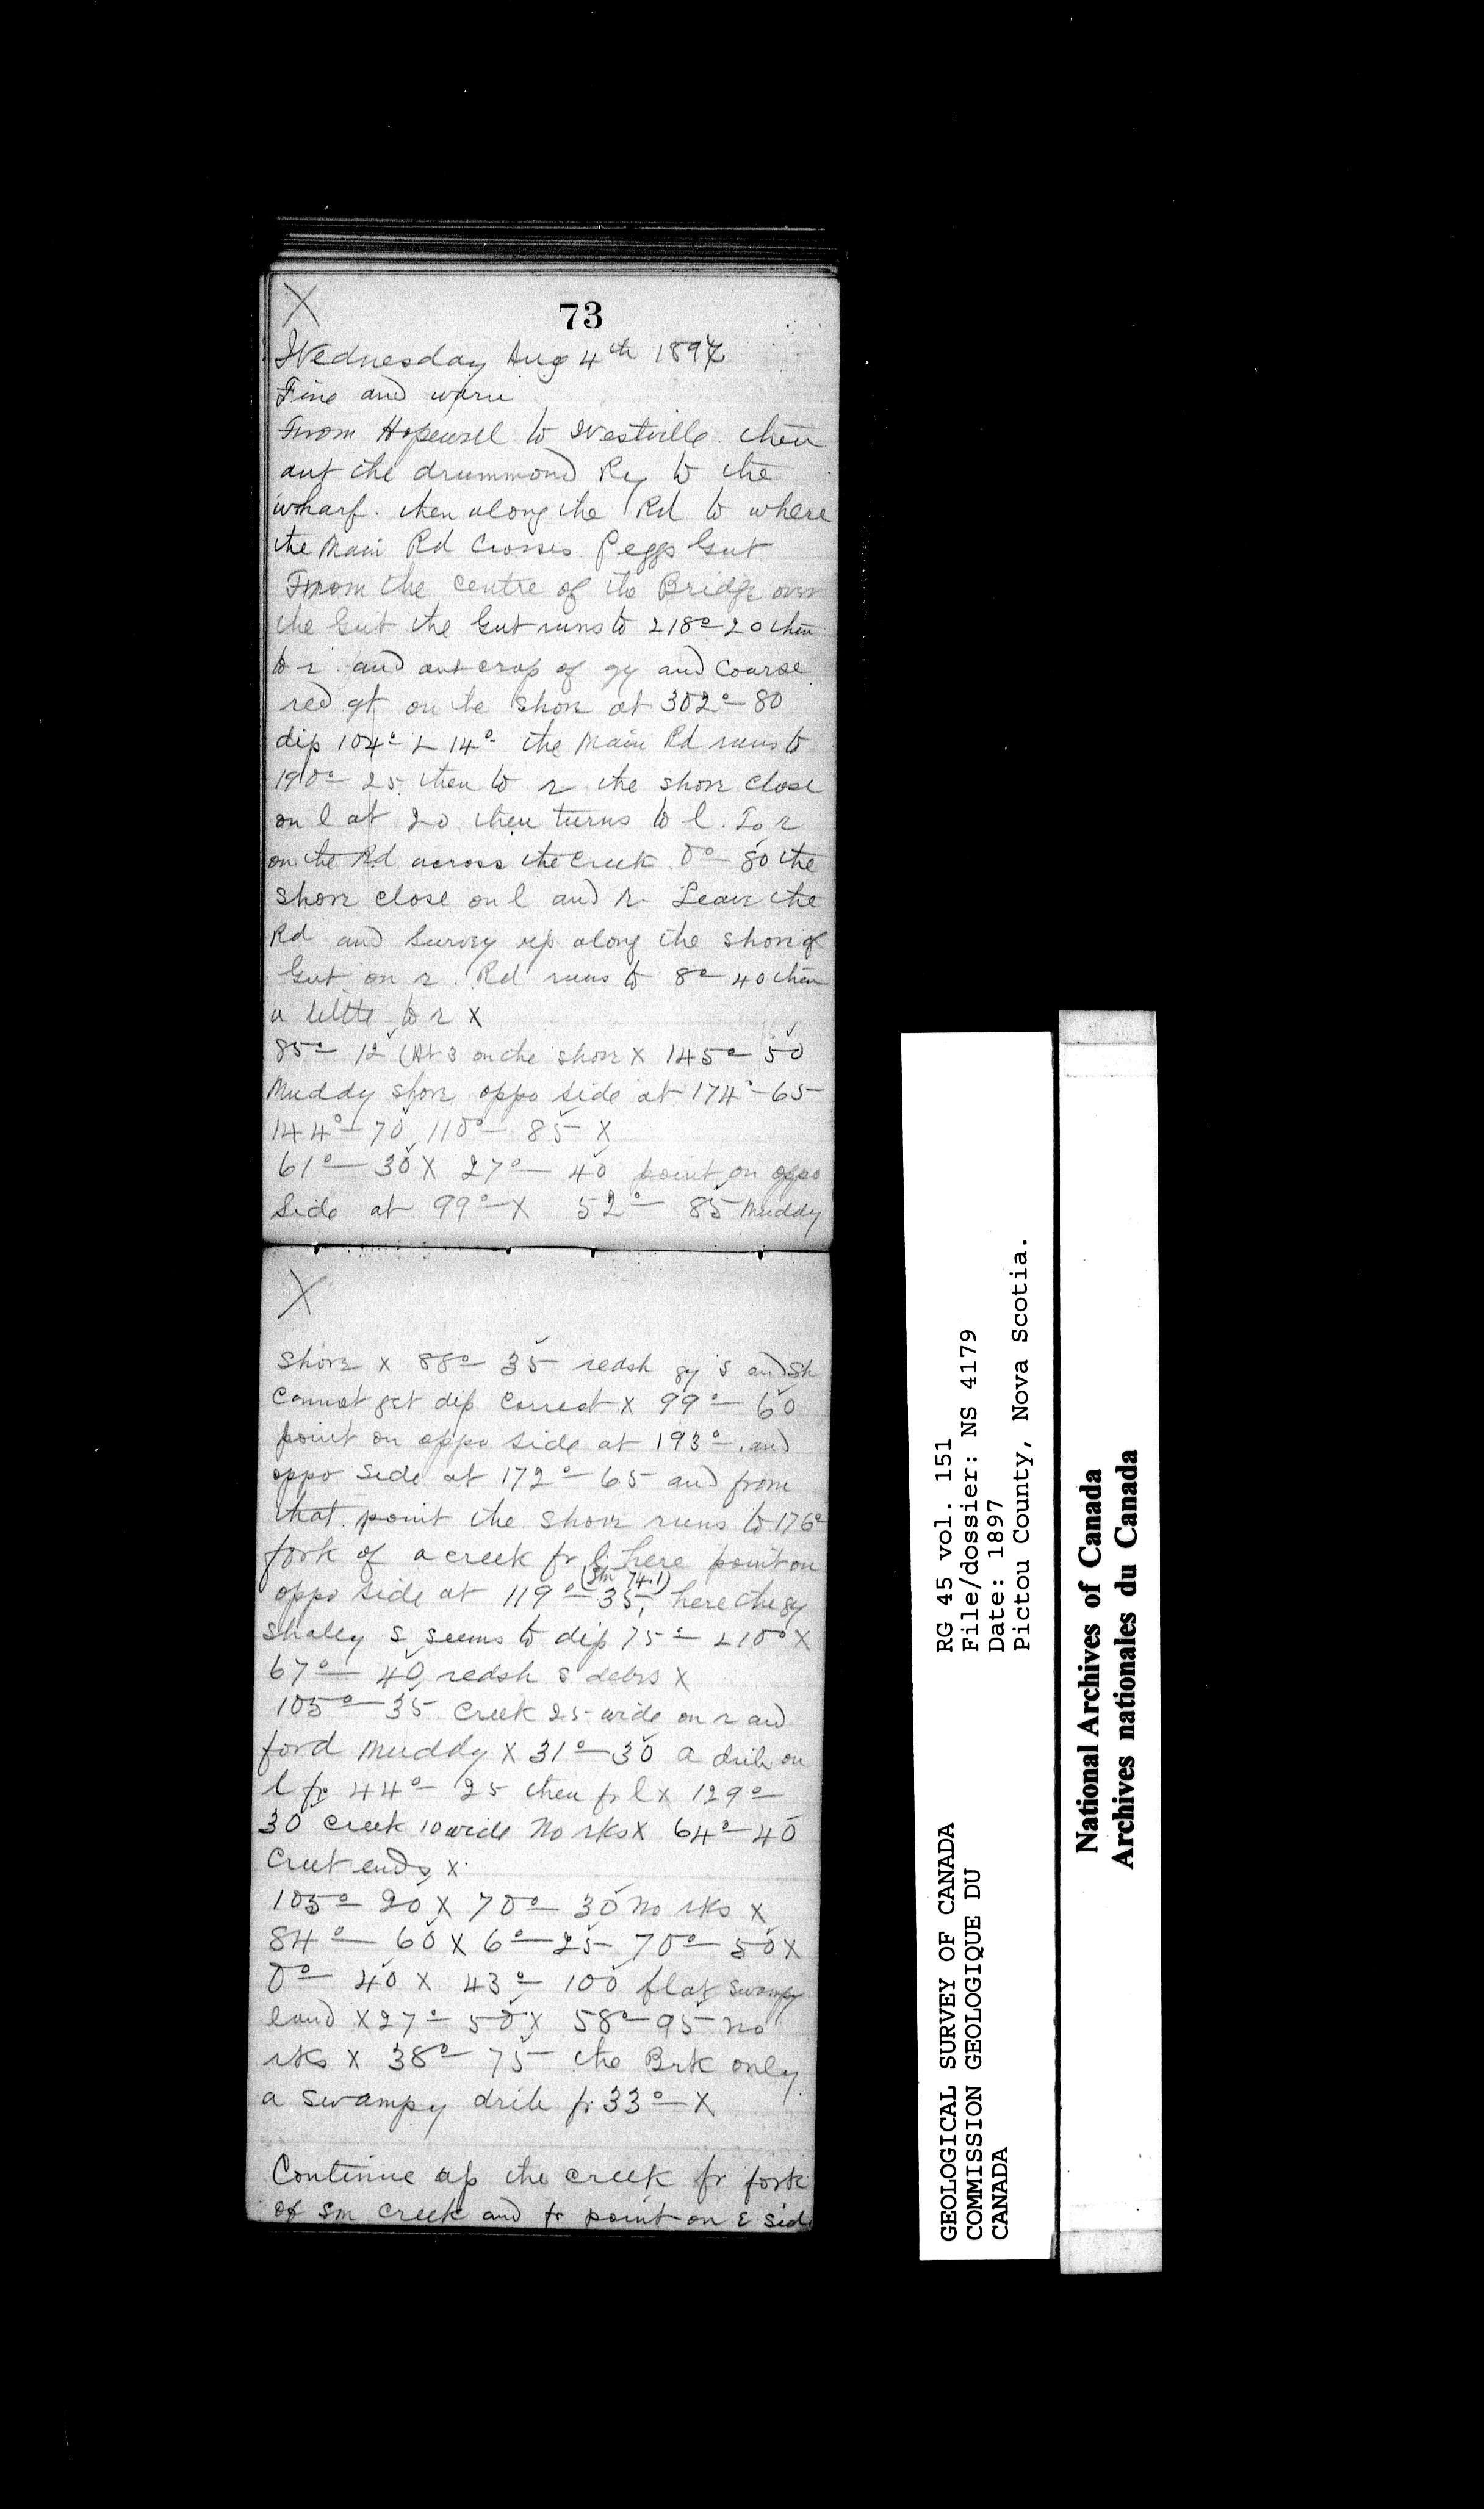 X
73
Wednesday Aug 4th 1897
Fine and warm
From Hopewell to Westville. then
out the drummond Ry to the
wharf. then along the Rd to where
the Main Rd Crosses Peggs Gut
From the Centre of the Bridge over
the Gut the Gut runs to 218°-20 then
to r. and outcrop of gy and Coarse
red gt on the Shore at 302°-80
dip 104°-∠14°- the Main Rd runs to
190°-25 then to r the shore close
on l at 20 then turns to l. To r
on the Rd across the Creek 0°-80 the
Shore close on l and r- Leave the
Rd and Survey up along the shore of
Gut on r. Rd runs to 8°-40 then
a little to r X
85°- 12 (At 3 on the shore X 145°-50
Muddy shore oppo side at 174°-65
144°-70 110°-85 X
61°-30 X 27°-40 point on oppo
Side at 99°-X 52°-85 Muddy
X
Shore X 88°-35 redsh gy s and Sh
Cannot get dip Correct X 99°-60
point on oppo side at 193°- and
oppo side at 172°-65 and from
that point the Shore runs to 176°
fork of a creek fr l. here point on
(Stn 74.1)
oppo side at 119°-35, here the gy
Shaley s seems to dip 75°-∠10° X
67°-40 redsh s debrs X
105°-35 Creek 25 wide on r and
ford Muddy X 31°-30 a drib on
l fr 44°-25 then fr l X 129°-
30 Creek 10 wide No rks X 64°-40
Creek ends X
105°-20 X 70°-30 No rks X
84°-60 X 6°-25 70°-50 X
0°-40 X 43°-100 flat swampy
land X 27°-50 X 58°-95 no
rks X 38°-75 the Brk only
a Swampy drib fr 33°-X
Continue up the Creek fr fork
of Sm Creek and fr point on E side
GEOLOGICAL SURVEY OF CANADA
COMMISSION GEOLOGIQUE DU
CANADA
RG 45 vol. 151
File/dossier: NS 4179
Date: 1897
Pictou County, Nova Scotia.
National Archives of Canada
Archives nationales du Canada